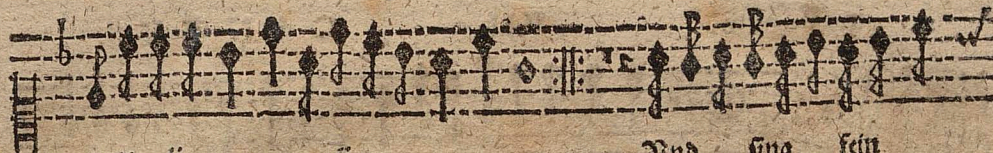 Vnd sing fein